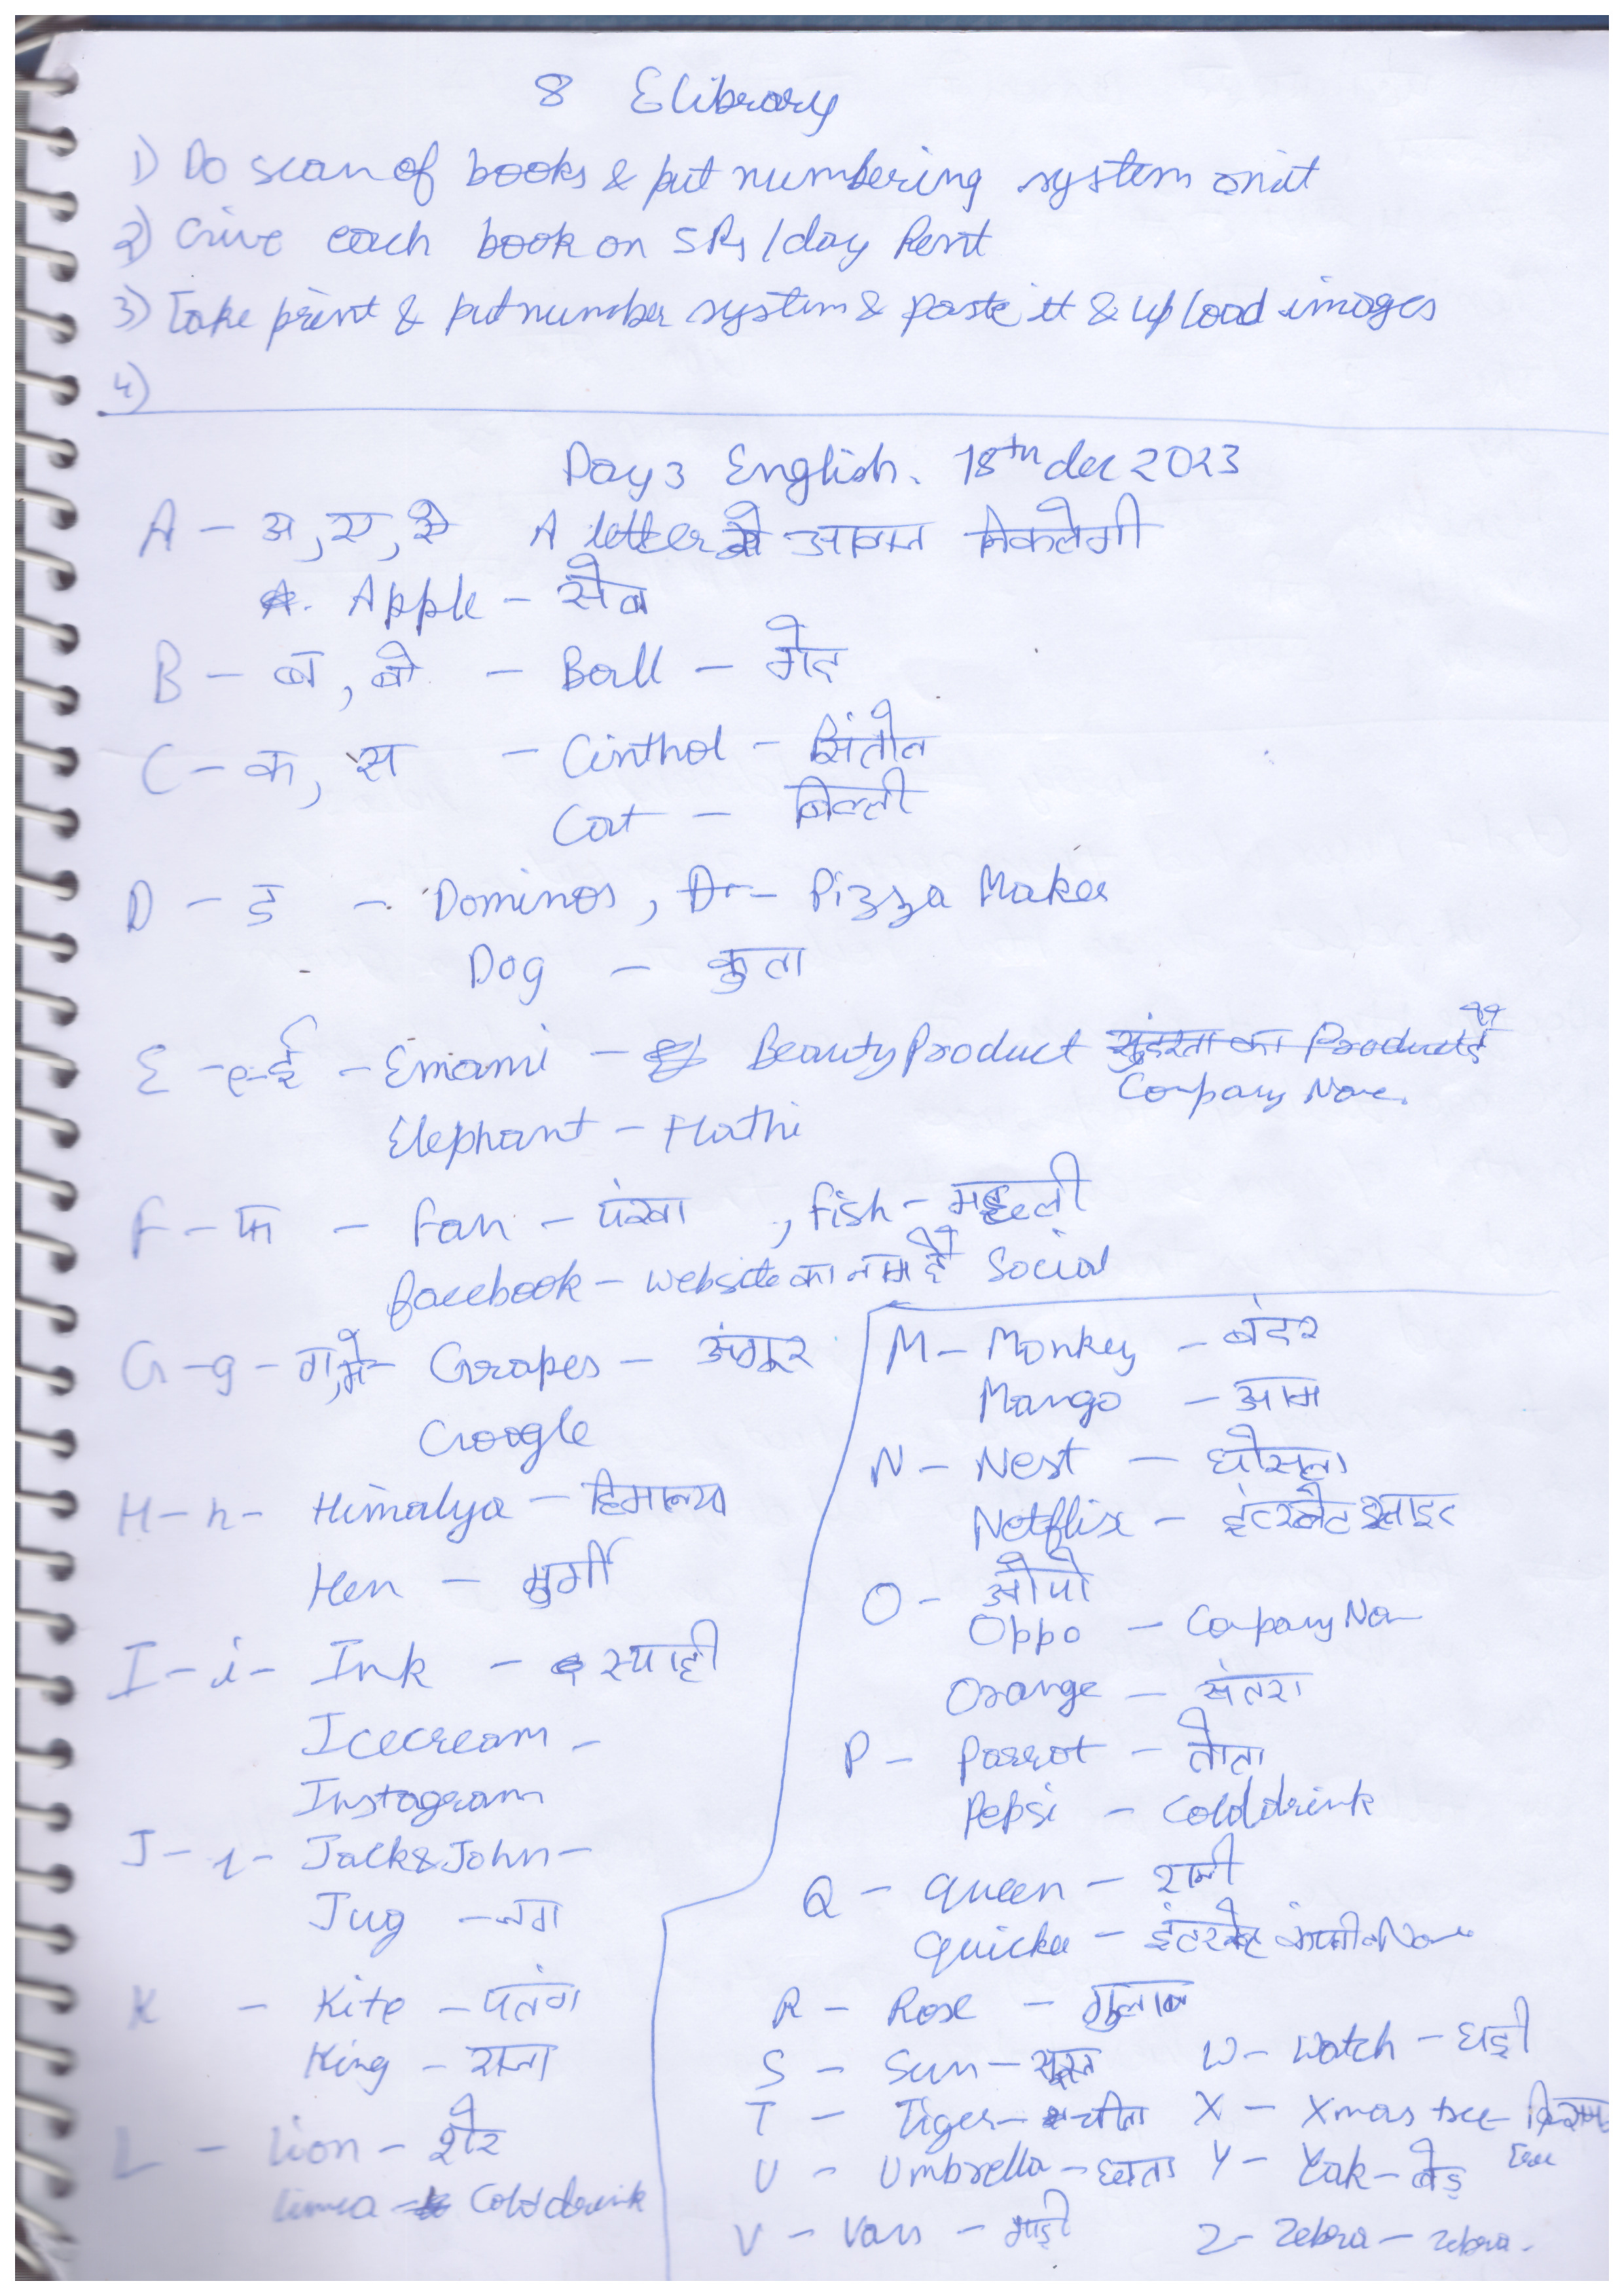 8 Elibrary
1) Do scan of books & put numbering system on it
2) Give each book on 5 Rs/day Rent
3) Take print & put number system & paste it & upload images
4)
Day 3 English. 18th dec 2023
A - अ, ए, ऐ A letter से आवाज निकलेगी
A. Apple - सेब
B - ब, बी - Ball - गेंद
C - क, स - Cinthol - सिंतोल
Cat - बिल्ली
D - ड - Dominos, Pizza Maker
Dog - कुता
E - e - ई - Emami - Beauty Product सुंदरता का Product है
Company Name.
Elephant - Hathi
F - फ - Fan - पंखा, fish - मछली
facebook - website का नाम है Social
G - g - ग, - Grapes - अंगूर
Google
H - h - Himalya - हिमालया
Hen - मुर्गी
I - i - Ink - स्याही
Icecream -
Instagram
J - j - Jack & John -
Jug - जग
K - Kite - पतंग
King - राजा
L - Lion - शेर
Limca - Cold drink
M - Monkey - बंदर
Mango - आम
N - Nest - घोसला
Netflix - इंटरनेट साइट
O - ओपो
Oppo - Company Name
Orange - संतरा
P - Parrot - तोता
Pepsi - Cold drink
Q - Queen - रानी
- इंटरनेट कंपनी Name
R - Rose - गुलाब
S - Sun - सूरज
T - Tiger - चीता
U - Umbrella - छाता
V - Van - गाड़ी
W - Watch - घड़ी
X - Xmas tree -
tree
Y - Yak -
Z - Zebra - zebra.